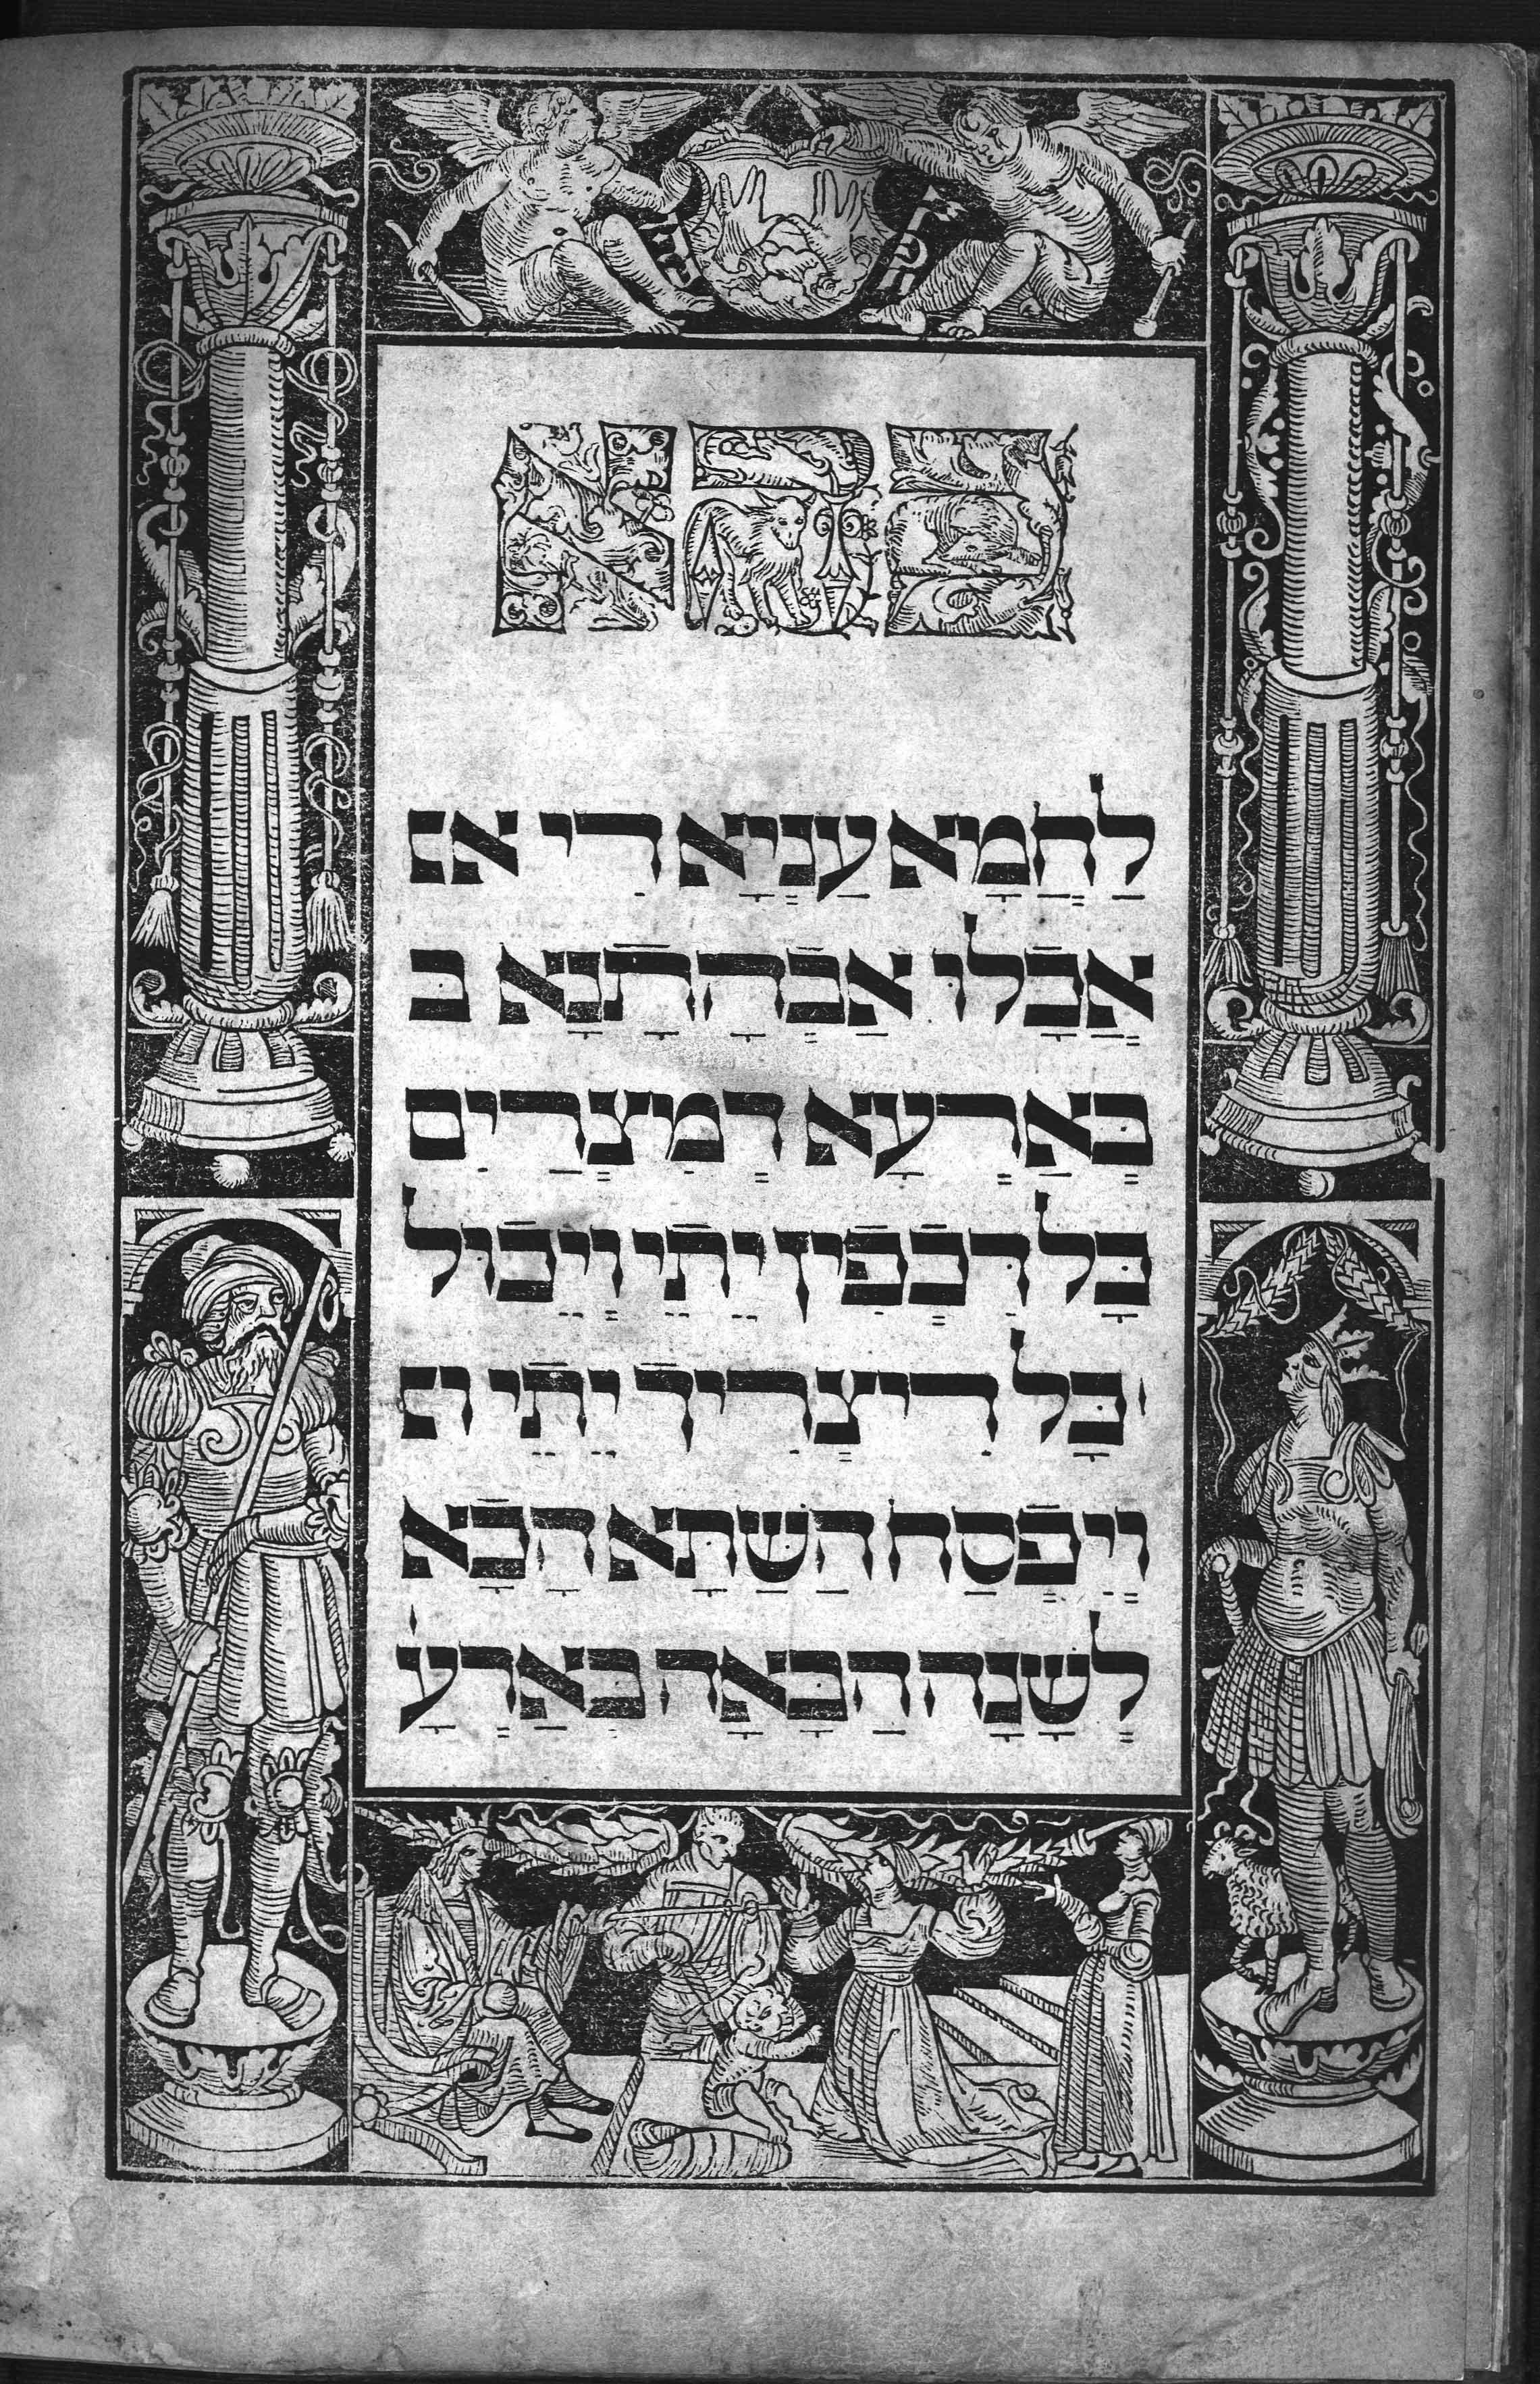 כהא
לַחֲמָא עַנְיָא דִי א
אֲכַלוּ אַבְהָתָנָא ב
בְּאַרְעָא דְמִצְרַיִם
כָּל דִּכְפִין יֵתֵי וְיֵכוּל
כָּל דִיצְרִיךְ יֵתֵי וי
וְיִפְסַח הַשַּׁתָּא הָכָא
לְשָׁנָה הַבָּאָה בְּאַרְעָ